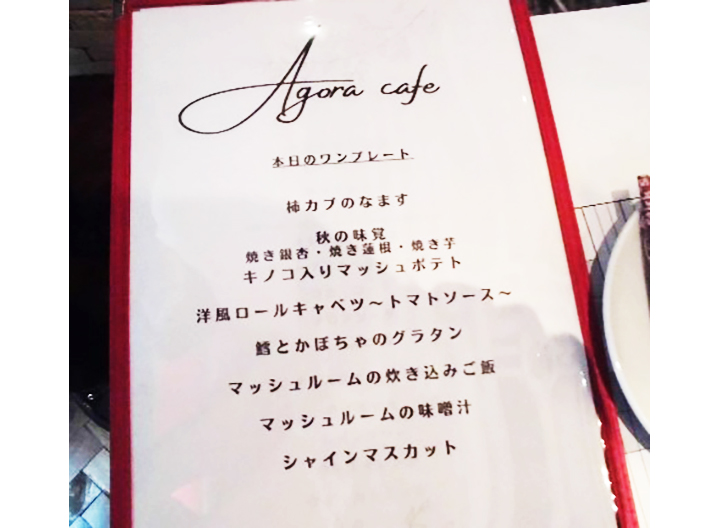 Agora cafe
本日のワンプレート
柿カブのなます
秋の味覚
焼き銀杏・焼き蓮根・焼き芋
キノコ入りマッシュポテト
洋風ロールキャベツ～トマトソース～
鱈とかぼちゃのグラタン
マッシュルームの炊き込みご飯
マッシュルームの味噌汁
シャインマスカット